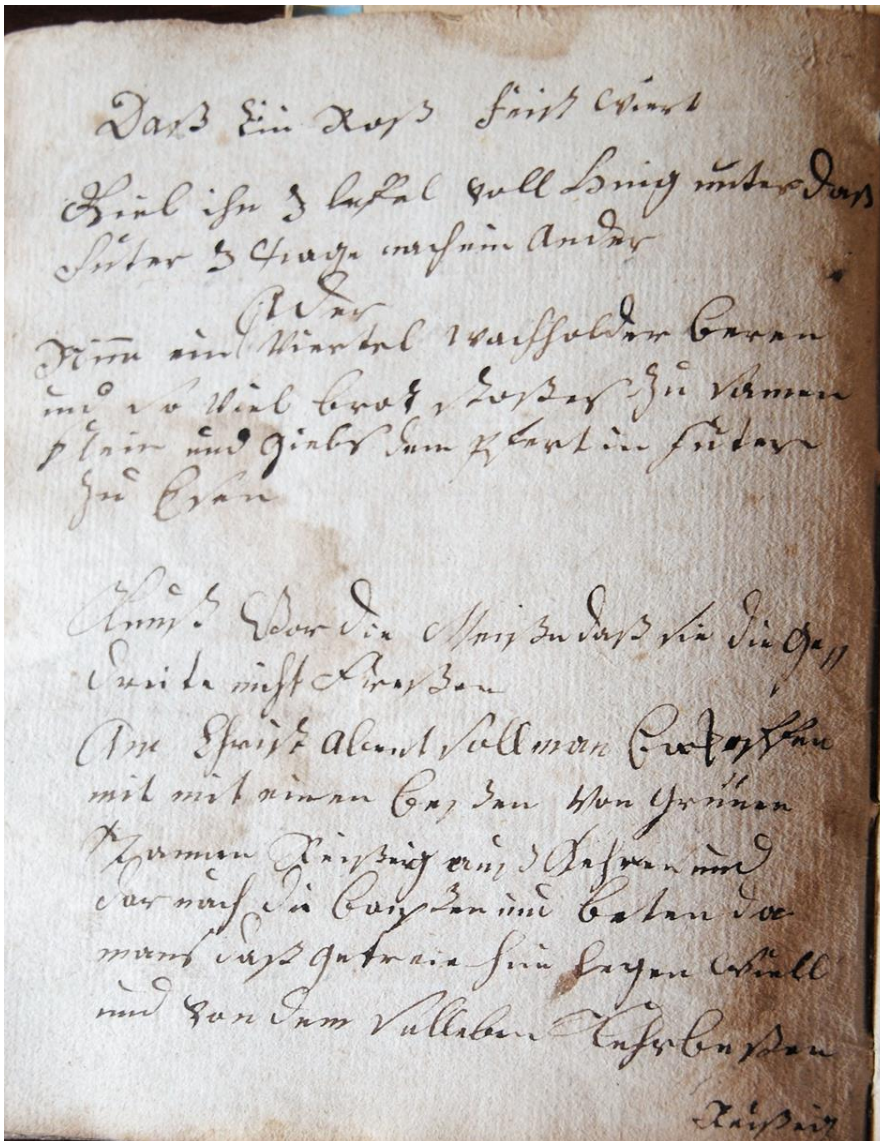 Daß Ein Roß feist Wiert
Giel ihn 3 leffel voll Honig unter daß
Futer 3 Tage nach ein Ander
Oder
Nim ein Viertel wachholder beren
und so Viel brot stoßes zu samen
klein und giebs dem Pfert in futer
zu Esen
Kunst Vor die Meißen daß sie die Ge
dreite nicht Freßen
Am Christ Abent soll man
mit mit einen beßen Von Grünen
Tannen Reißig auß Kehren und
dar nach die banßen und beten da
mans daß getreie hin legen Wiell
und von dem selleben Kehrbeßen
Reißig